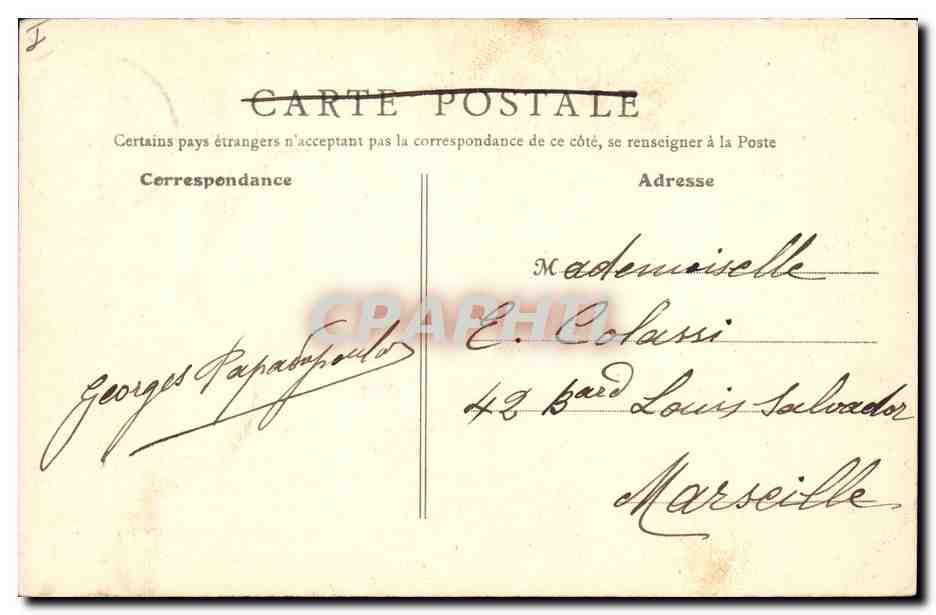 I
CARTE POSTALE
Certains pays étrangers n'acceptant pas la correspondance de ce côté, se renseigner à la Poste
Correspondance
Adresse
Georges Papadopoulos
Mademoiselle
E. Colassi
42 Bard Louis Salvador
Marseille
CPAPHIL